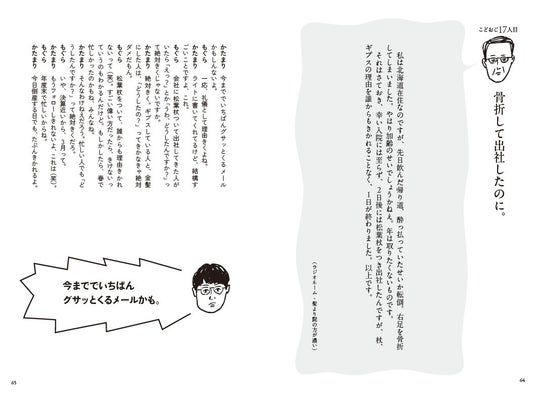 こどおじ17人目
骨折して出社したのに。
私は北海道在住なのですが、先日飲んだ帰り道、酔っ払っていたせいか転倒、右足を骨折
してしまいました。やはり加齢のせいでしょうかねえ。年は取りたくないものです。
それはさておき、幸い入院には至らず、2日後には松葉杖をつき出社したんですが、杖、
ギプスの理由を誰からもきかれることなく、1日が終わりました。以上です。
64
かたまり 今まででいちばんグサッとくるメール
かもしんないよ。
かたまり 一応、礼儀として理由きくよね。
もぐら ライトに書いてくれてるけど、結構す
ごいことですよ、これ。
かたまり 会社に松葉杖ついて出社してきた人が
いたら「えっ?」とか「わ、どうしたんですか?」っ
て絶対きくじゃないですか。
もぐら 絶対きく。ギプスしている人と、金髪
にした人は、「どうしたの?」ってきかなきゃ絶対
ダメだもん。
もぐら 松葉杖をついて、誰からも理由きかれ
ないって(笑)。すごい偉い方だったら、きけないっ
ていうのもわかるんだけど。もしかしたら、春で
忙しかったのかもね、みんなね。
かたまり そんなわけねえだろう。忙しい人でも「ど
うしたんですか?」って絶対きくだろ。
もぐら いや、決算近いから、3月って。
かたまり もうフォローしきれないよ、これは(笑)。
もぐら 年度末で忙しいからね。
かたまり 今日倒産する日でも、たぶんきかれるよ。
今まででいちばん
グサッとくるメールかも。
65